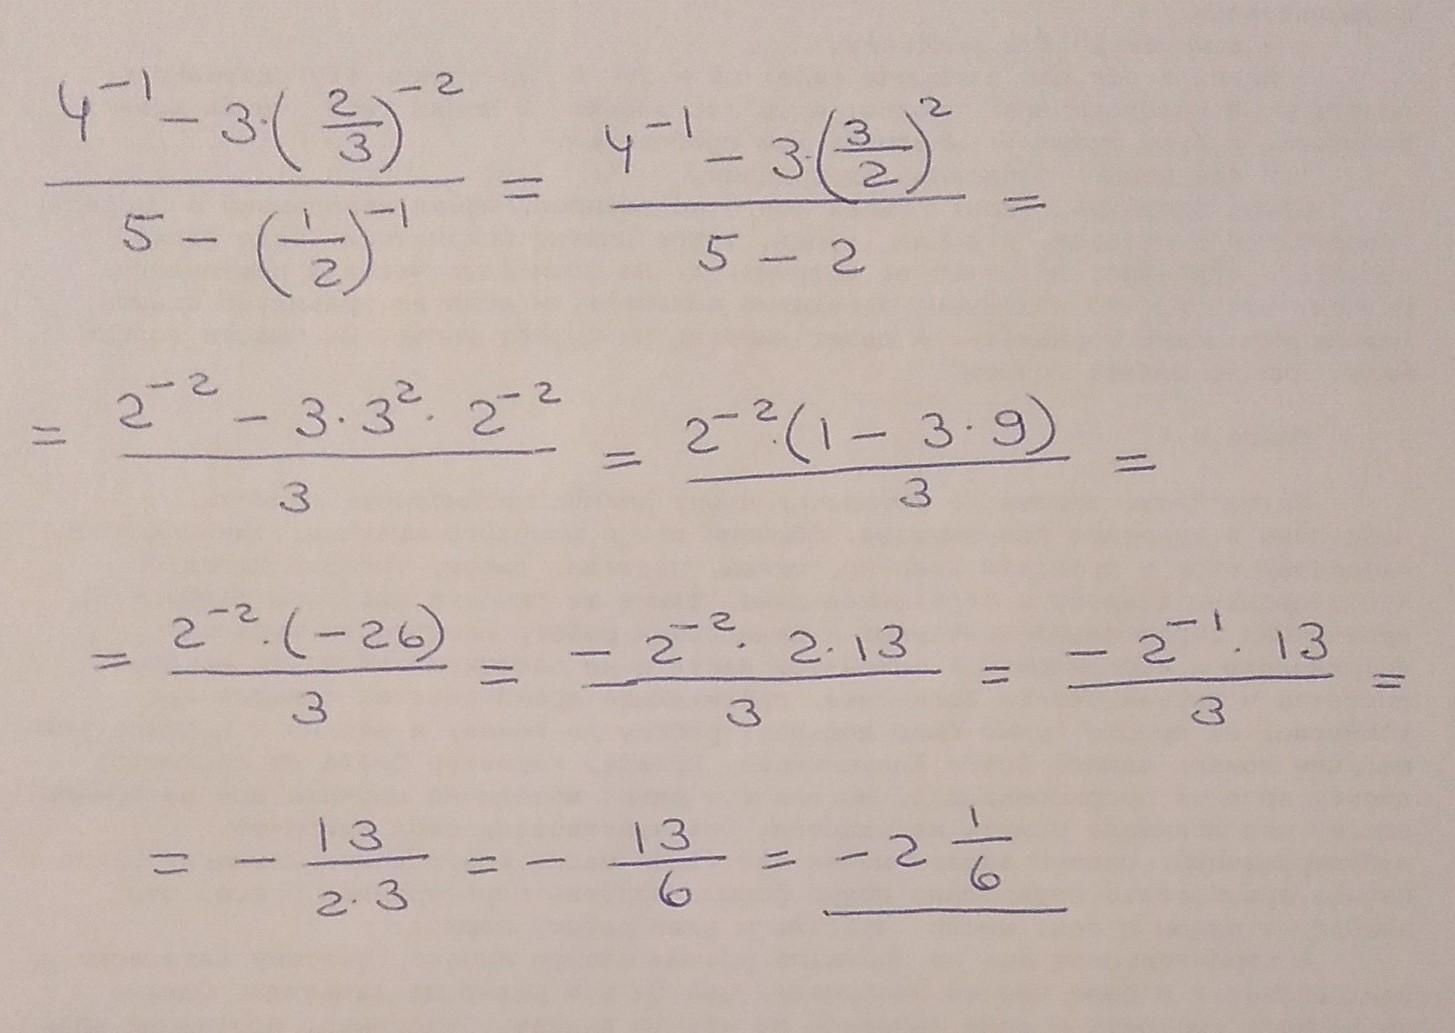 \frac{4^{-1} - 3 \cdot \left(\frac{2}{3}\right)^{-2}}{5 - \left(\frac{1}{2}\right)^{-1}} = \frac{4^{-1} - 3 \cdot \left(\frac{3}{2}\right)^{2}}{5 - 2} =
= \frac{2^{-2} - 3 \cdot 3^{2} \cdot 2^{-2}}{3} = \frac{2^{-2} \cdot (1 - 3 \cdot 9)}{3} =
= \frac{2^{-2} \cdot (-26)}{3} = \frac{-2^{-2} \cdot 2 \cdot 13}{3} = \frac{-2^{-1} \cdot 13}{3} =
= -\frac{13}{2 \cdot 3} = -\frac{13}{6} = -2\frac{1}{6}